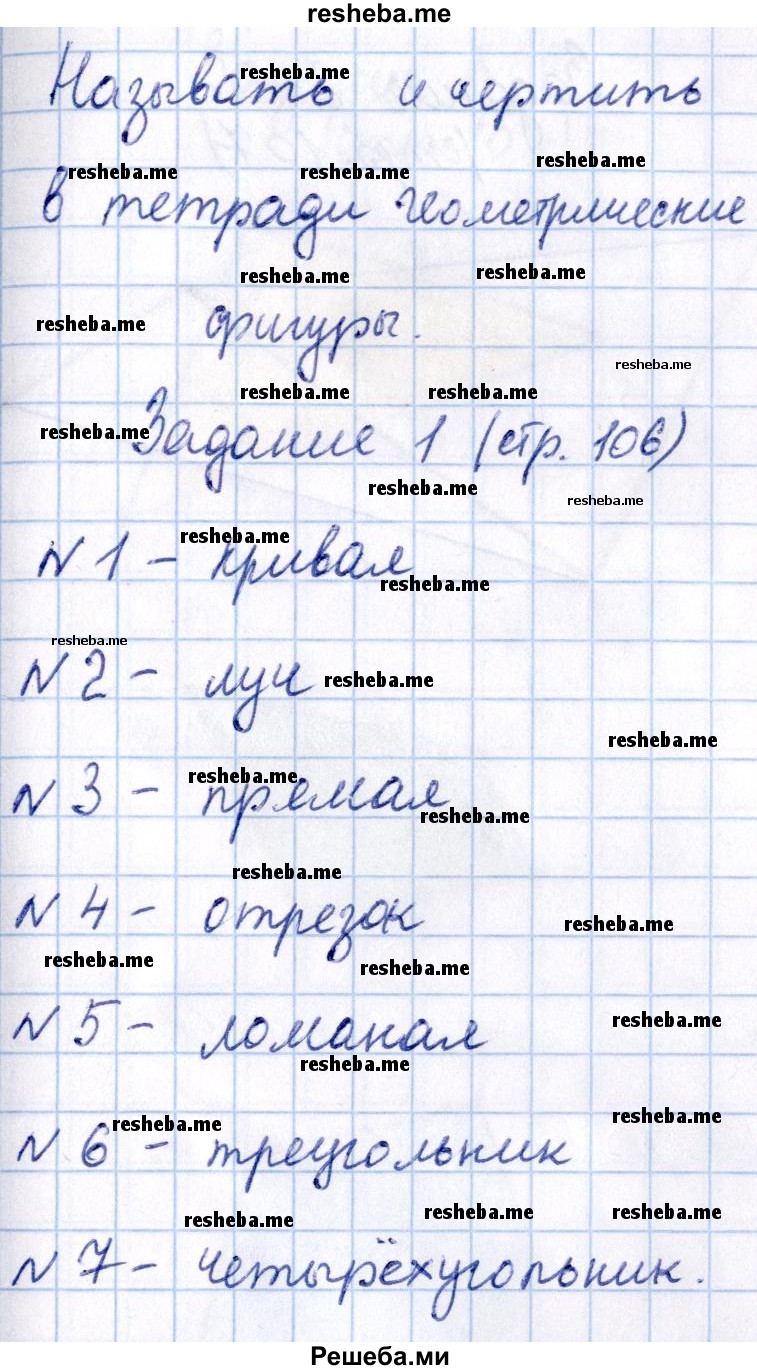 resheba.me
Называть и чертить
в тетради геометрические
фигуры.
Задание 1 (стр. 106)
N 1 - кривая
N 2 - луч
N 3 - прямая
N 4 - отрезок
N 5 - ломаная
N 6 - треугольник
N 7 - четырёхугольник.
Решеба.ми